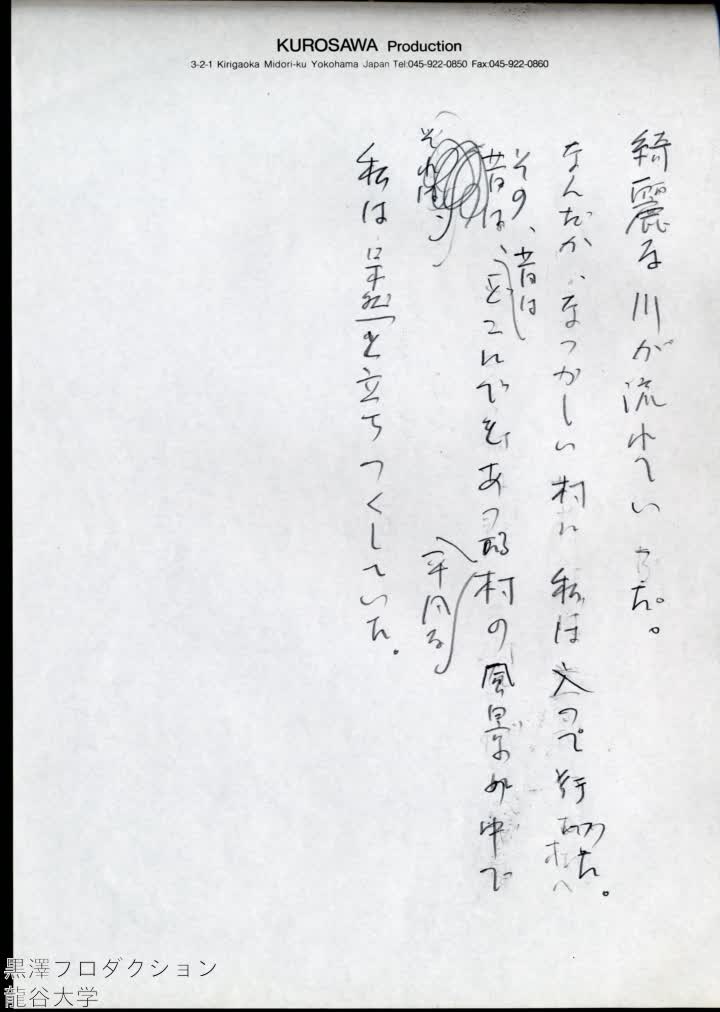 KUROSAWA Production
3-2-1 Kirigaoka Midori-ku Yokohama Japan Tel:045-922-0850 Fax:045-922-0860
綺麗な川が流れていた。
なんだか、なつかしい村に私は入って行った。
その、昔は
昔は、どこにでもあった村の風景の中で
それは
平凡な
私は呆然と立ちつくしていた。
黒澤プロダクション
龍谷大学